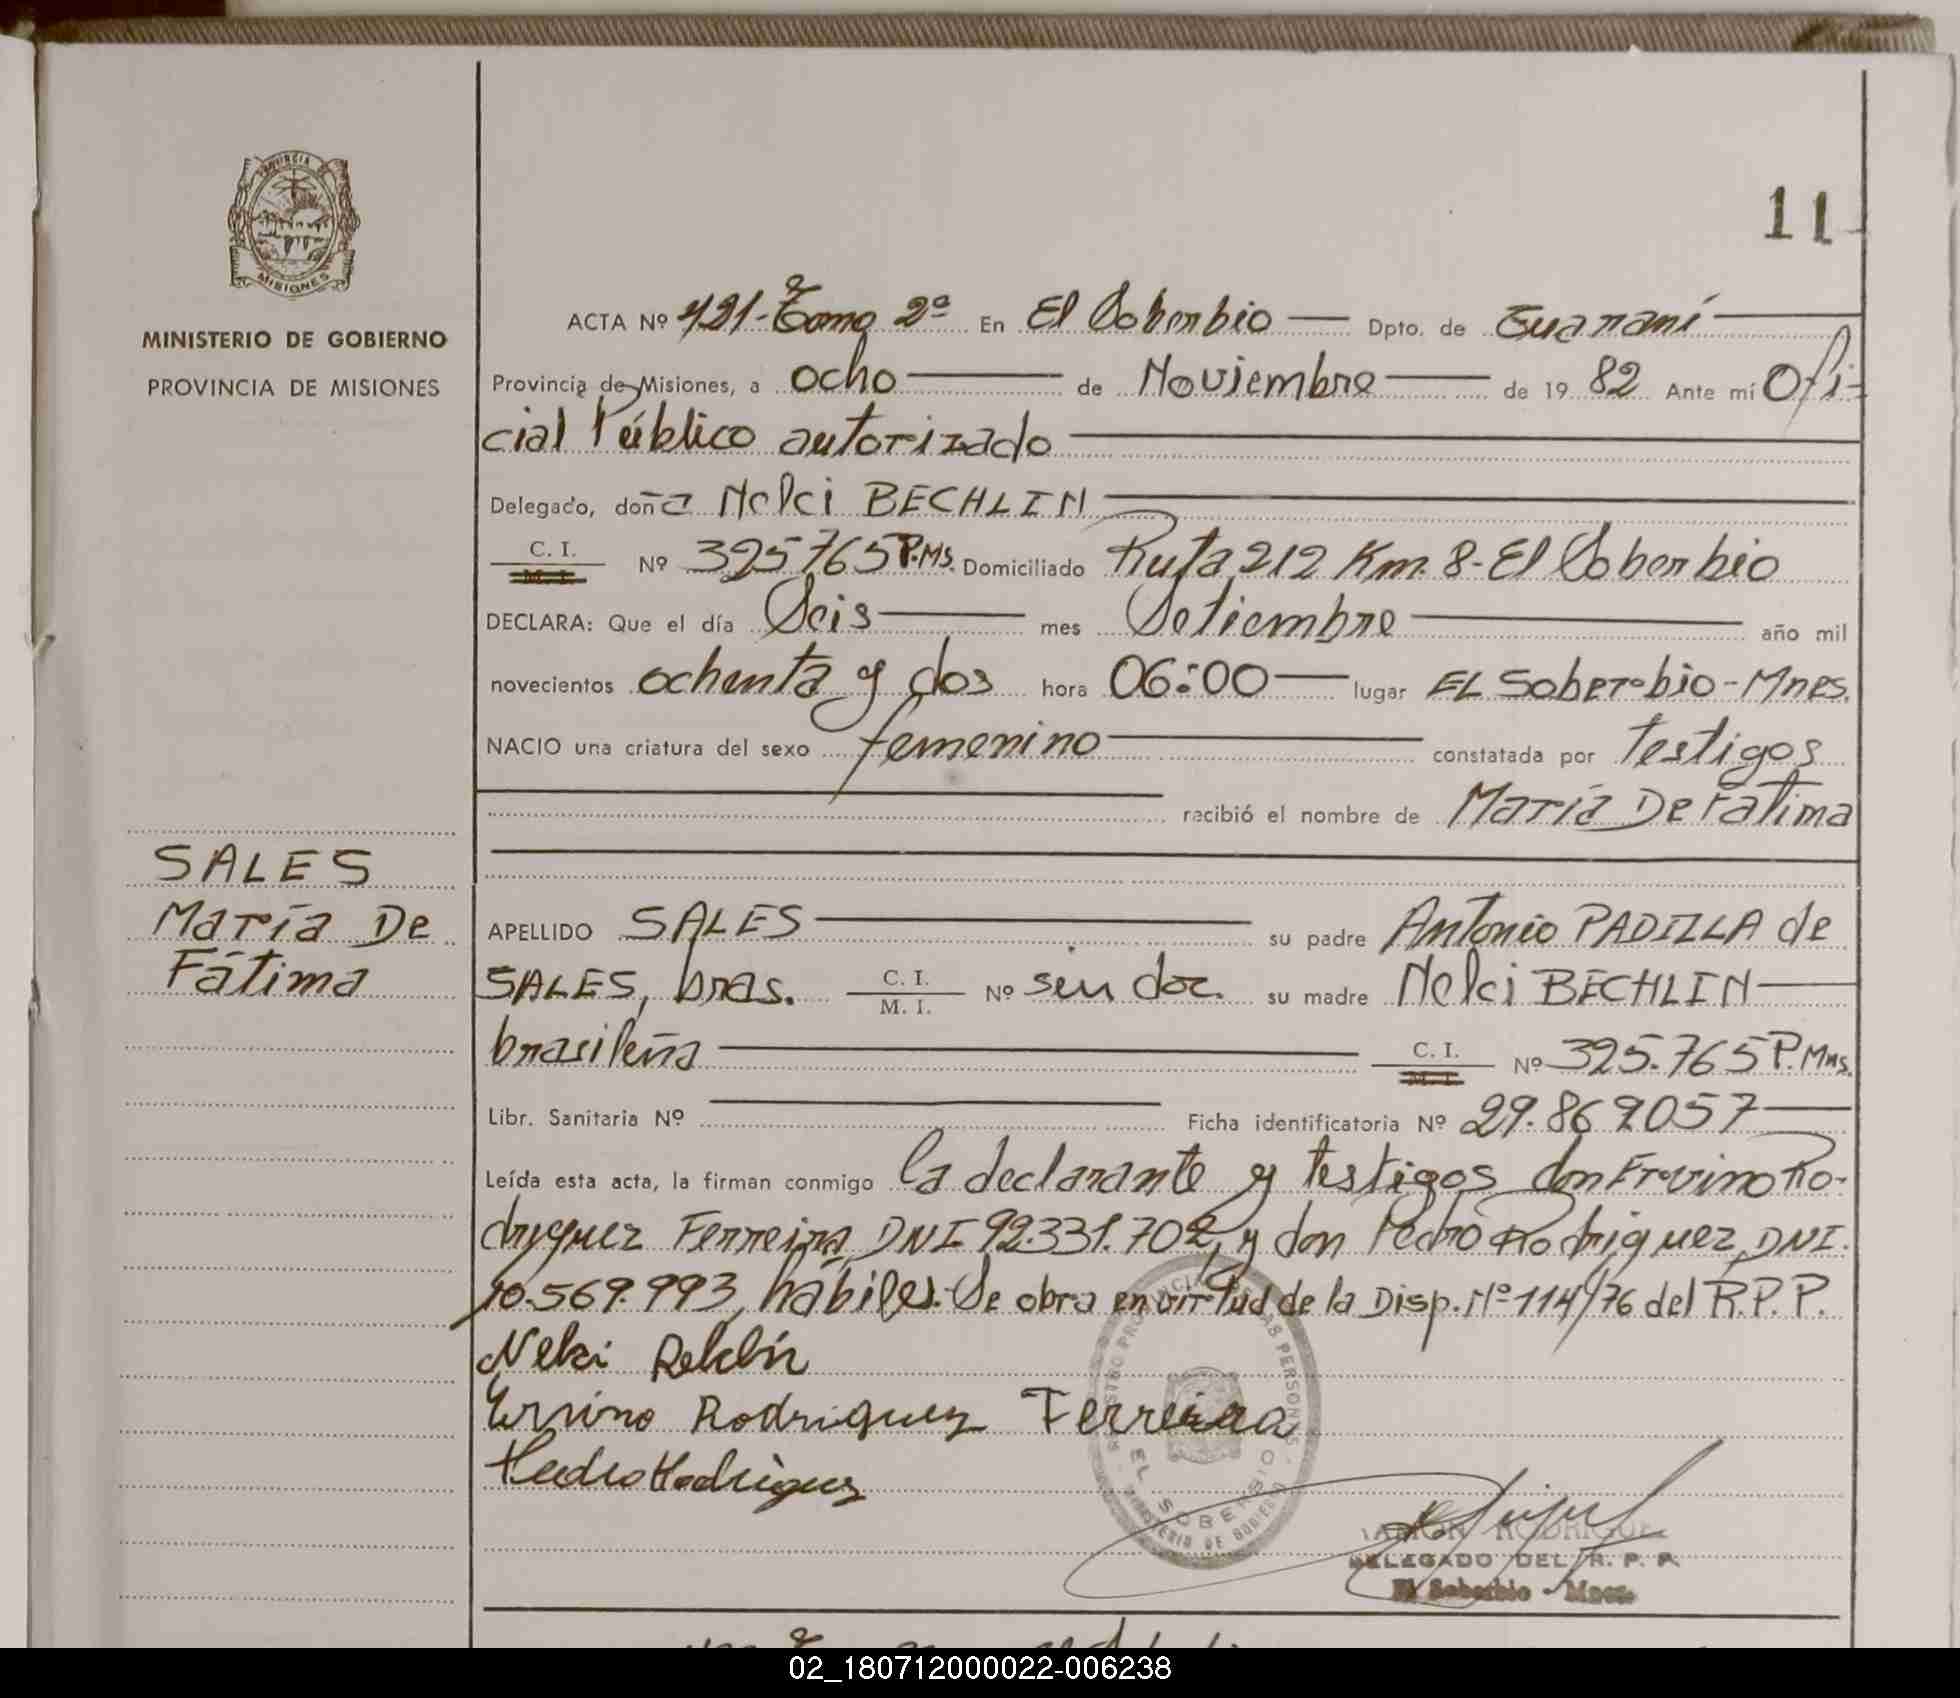 11
PROVINCIA DE
MISIONES
MINISTERIO DE GOBIERNO
PROVINCIA DE MISIONES
SALES
María De
Fátima
ACTA Nº 421-Tomo 2º En El Soberbio Dpto. de Guaraní
Provincia de Misiones, a ocho de Noviembre de 19 82 Ante mí Ofi-
cial Público autorizado
Delegado, doña Nelci BECHLIN
C. I. M. I. Nº 325765 P.Ms. Domiciliado Ruta 212 Km. 8-El Soberbio
DECLARA: Que el día Seis mes Setiembre año mil
novecientos ochenta y dos hora 06:00 lugar EL Soberbio-Mnes.
NACIO una criatura del sexo femenino constatada por testigos
recibió el nombre de María De Fatima
APELLIDO SALES su padre Antonio PADILLA de
SALES, bras. C. I. M. I. Nº sin doc. su madre Nelci BECHLIN
brasileña C. I. M. I. Nº 325.765 P. Mns.
Libr. Sanitaria Nº Ficha identificatoria Nº 29.869057
Leída esta acta, la firman conmigo la declarante y testigos don Ervino Ro-
driguez Ferreira, DNI 92.331.702, y don Pedro Rodriguez, DNI.
10.569.993, hábiles. Se obra en virtud de la Disp. Nº 114/76 del R.P.P.
Nelci
Ervino Rodriguez Ferreira
Pedro Rodriguez
EL SOBERBIO
MINISTERIO DE GOBIERNO
RAMON RODRIGUEZ
DELEGADO DEL R. P. P.
El Soberbio - Mnes.
02_180712000022-006238